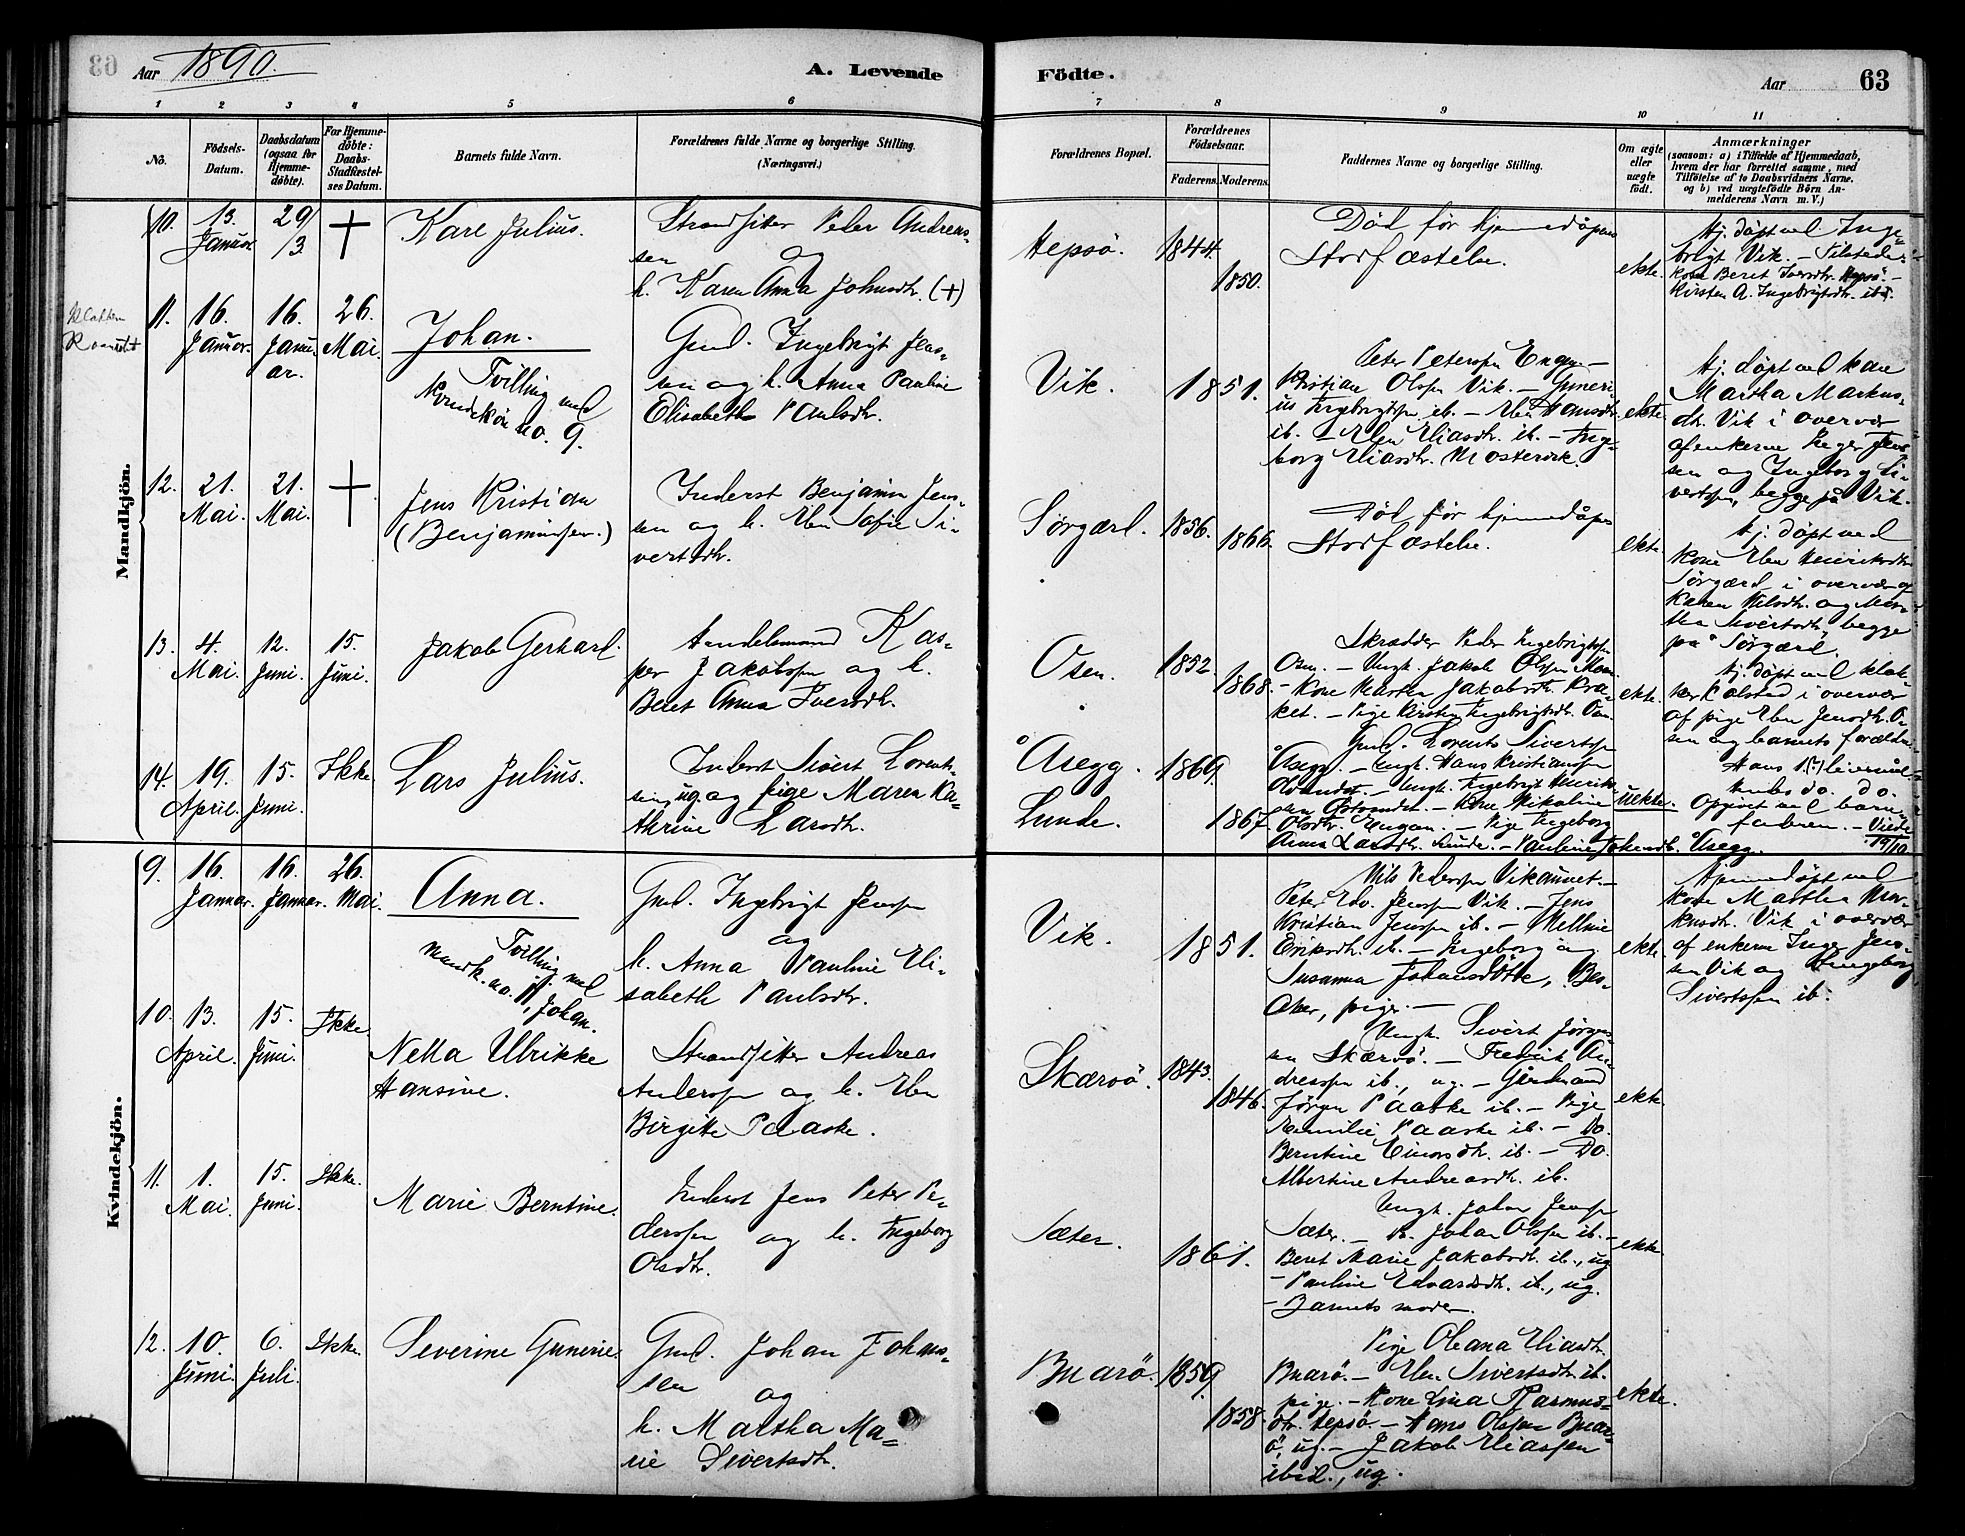 Aar 1890.
A. Levende
Födte.
Aar
63
1 2 3 4 5 6 7 8 9 10 11
No.
Födsels-
Datum.
Daabsdatum
(ogsaa for
Hjemme-
döbte).
For Hjemme-
döbte:
Daabs-
Stadfæstel-
ses Datum.
Barnets fulde Navn.
Forældrenes fulde Navne og borgerlige Stilling.
(Næringsvei.)
Forældrenes Bopæl.
Forældrenes
Födselsaar.
Faderens. Moderens.
Faddernes Navne og borgerlige Stilling.
Om ægte
eller
uægte
födt.
Anmærkninger
(saasom: a) i Tilfælde af Hjemmedaab,
hvem der har forrettet samme, med
Tilföielse af to Daabsvidners Navne,
og b) ved uægtefödte Börn An-
melderens Navn m. V.)
Mandkjön.
10. 13. Januar 29/3 +
Karl Julius.
Strandsitter Peder Andreas-
sen og
h. Karen Anna Johnsdtr. (+)
Hepsö. 1844. 1850.
Död för hjemmedåpens
Stadfæstelse.
ekte.
Hj. döpt ved Inge-
brigt Vik. – Tilstede:
kone Beret Iversdtr. Hepsö –
Kirsten A. Ingebrigtsdtr. ib.
11. 16. Januar. 16. Janu-
ar. 26. Mai.
Johan.
Tvilling med
Kvindekön no. 9.
Gmd. Ingebrigt Jens-
sen og h. Anna Pauline
Elisabeth Paulsdtr.
Vik. 1851.
Peter Petersen Engan –
Kristian Olssen Vik. – Guneri-
us Ingebrigtsen ib. – Elen Hansdtr.
ib. – Elen Eliasdtr. ib. – Inge-
borg Eliasdtr. Mostervik.
ekte.
Hj. döpt ved kone
Martha Markus-
dtr. Vik i overvær
af enkerne Inger Jens-
sen og Ingeborg Si-
vertsen, begge på Vik.
12. 21. Mai. 21. Mai. +
Jens Kristian
(Benjaminsen.)
Inderst Benjamin Jens-
sen og h. Elen Sofie Si-
vertsdtr.
Sörgærd. 1856. 1866.
Död för hjemmedåpens
Stadfæstelse.
ekte.
Hj. döpt ved
kone Elen Henriksdtr.
Sörgærd i overvær af
Karen Nilsdtr. og Mar-
tha Sivertsdtr., begge
på Sörgærd.
13. 4. Mai. 12. Juni. 15. Juni.
Jakob Gerhard.
Handelsmand Kas-
per Jakobsen og h.
Beret Anna Iversdtr.
Osen. 1852. 1868.
Skrædder Peder Ingebrigtsen
Osen. – Ungk. Jakob Olssen
– Kone Marten Jakobsdtr. Kra-
ket. – Pige Kirsten Ingebrigtsdtr. Osen.
ekte.
Hj. döpt ved klok-
ker Kolstad i overvær
af pige Elen Jensdtr. O-
sen og barnets forældre.
14. 19. April. 15. Juni. Ikke.
Lars Julius.
Inderst Sivert Lorents-
sen, ug. og pige Maren Ka-
thrine Larsdtr.
Åsegg. 1869.
Lunde. 1867.
Gmd. Lorents Sivertsen
Åsegg. – Ungk. Hans Kristiansen
– Ungk. Ingebrigt Henrik-
sen – Kone Nikoline
Olsdtr. Engan. – Pige Ingeborg
Anna Larsdtr. Lunde. – Pauline
uekte.
Hans 1. (?) leiermål
hendes do. do.
Opgivet ved barne-
faderen. –
Åsegg.
Kvindekjön.
9. 16. Januar. 16. Januar. 26. Mai.
Anna.
Tvilling med
mandk. no. 11, Johan.
Gmd. Ingebrigt Jenssen
og
h. Anna Pauline Eli-
sabeth Paulsdtr.
Vik. 1851.
Nils Pedersen Vikaunet. –
Peter Edv. Jenssen Vik. – Jens
Kristian Jenssen ib. – Melline
Eriksdtr. ib. – Ingeborg og
Susanna Johansdötre, Bes-
aker, piger. –
ekte.
Hjemmedöpt ved
kone Martha Mar-
kusdtr. Vik i overvær
af enkerne Inger Jens-
sen Vik og Ingeborg
Sivertsen ib.
10. 13. April. 15. Juni. Ikke.
Nella Ulrikke
Hansine.
Strandsitter Andreas
Anderssen og h. Elen
Birgitte Paaske.
Skærvö. 1843. 1846.
Ungk. Sivert Jörgen-
sen Skærvö. – Fredrik An-
dreassen ib., ug. – Gårdmand
Jörgen Paaske ib. – Pige
Emilie Paaske ib. – Do.
Berntine Einarsdtr. ib. – Do.
Albertine Andreasdtr. ib.
ekte.
11. 1. Mai. 15. Juni. Ikke.
Marie Berntine.
Inderst Jens Peter Pe-
derssen og h. Ingeborg
Olsdtr.
Sæter. 1861.
Ungk. Johan Jenssen
Sæter. – Johan Olssen ib. –
Beret Marie Jakobsdtr. ib., ug.
– Pauline Edvardsdtr. ib., ug.
– Barnets moder.
ekte.
12. 10. Juni. 6. Juli. Ikke.
Severine Gunerie.
Gmd. Johan Johans-
sen og
h. Martha Ma-
rie Sivertsdtr.
Buarö. 1859. 1858.
Pige Oleana Eliasdtr.
Buarö. – Elen Sivertsdtr. ib.
pige. – Kone Lina Rasmus-
dtr. Hepsö – Hans Olssen Buar-
ö, ug. – Jakob Eliassen
ibid., ug.
ekte.